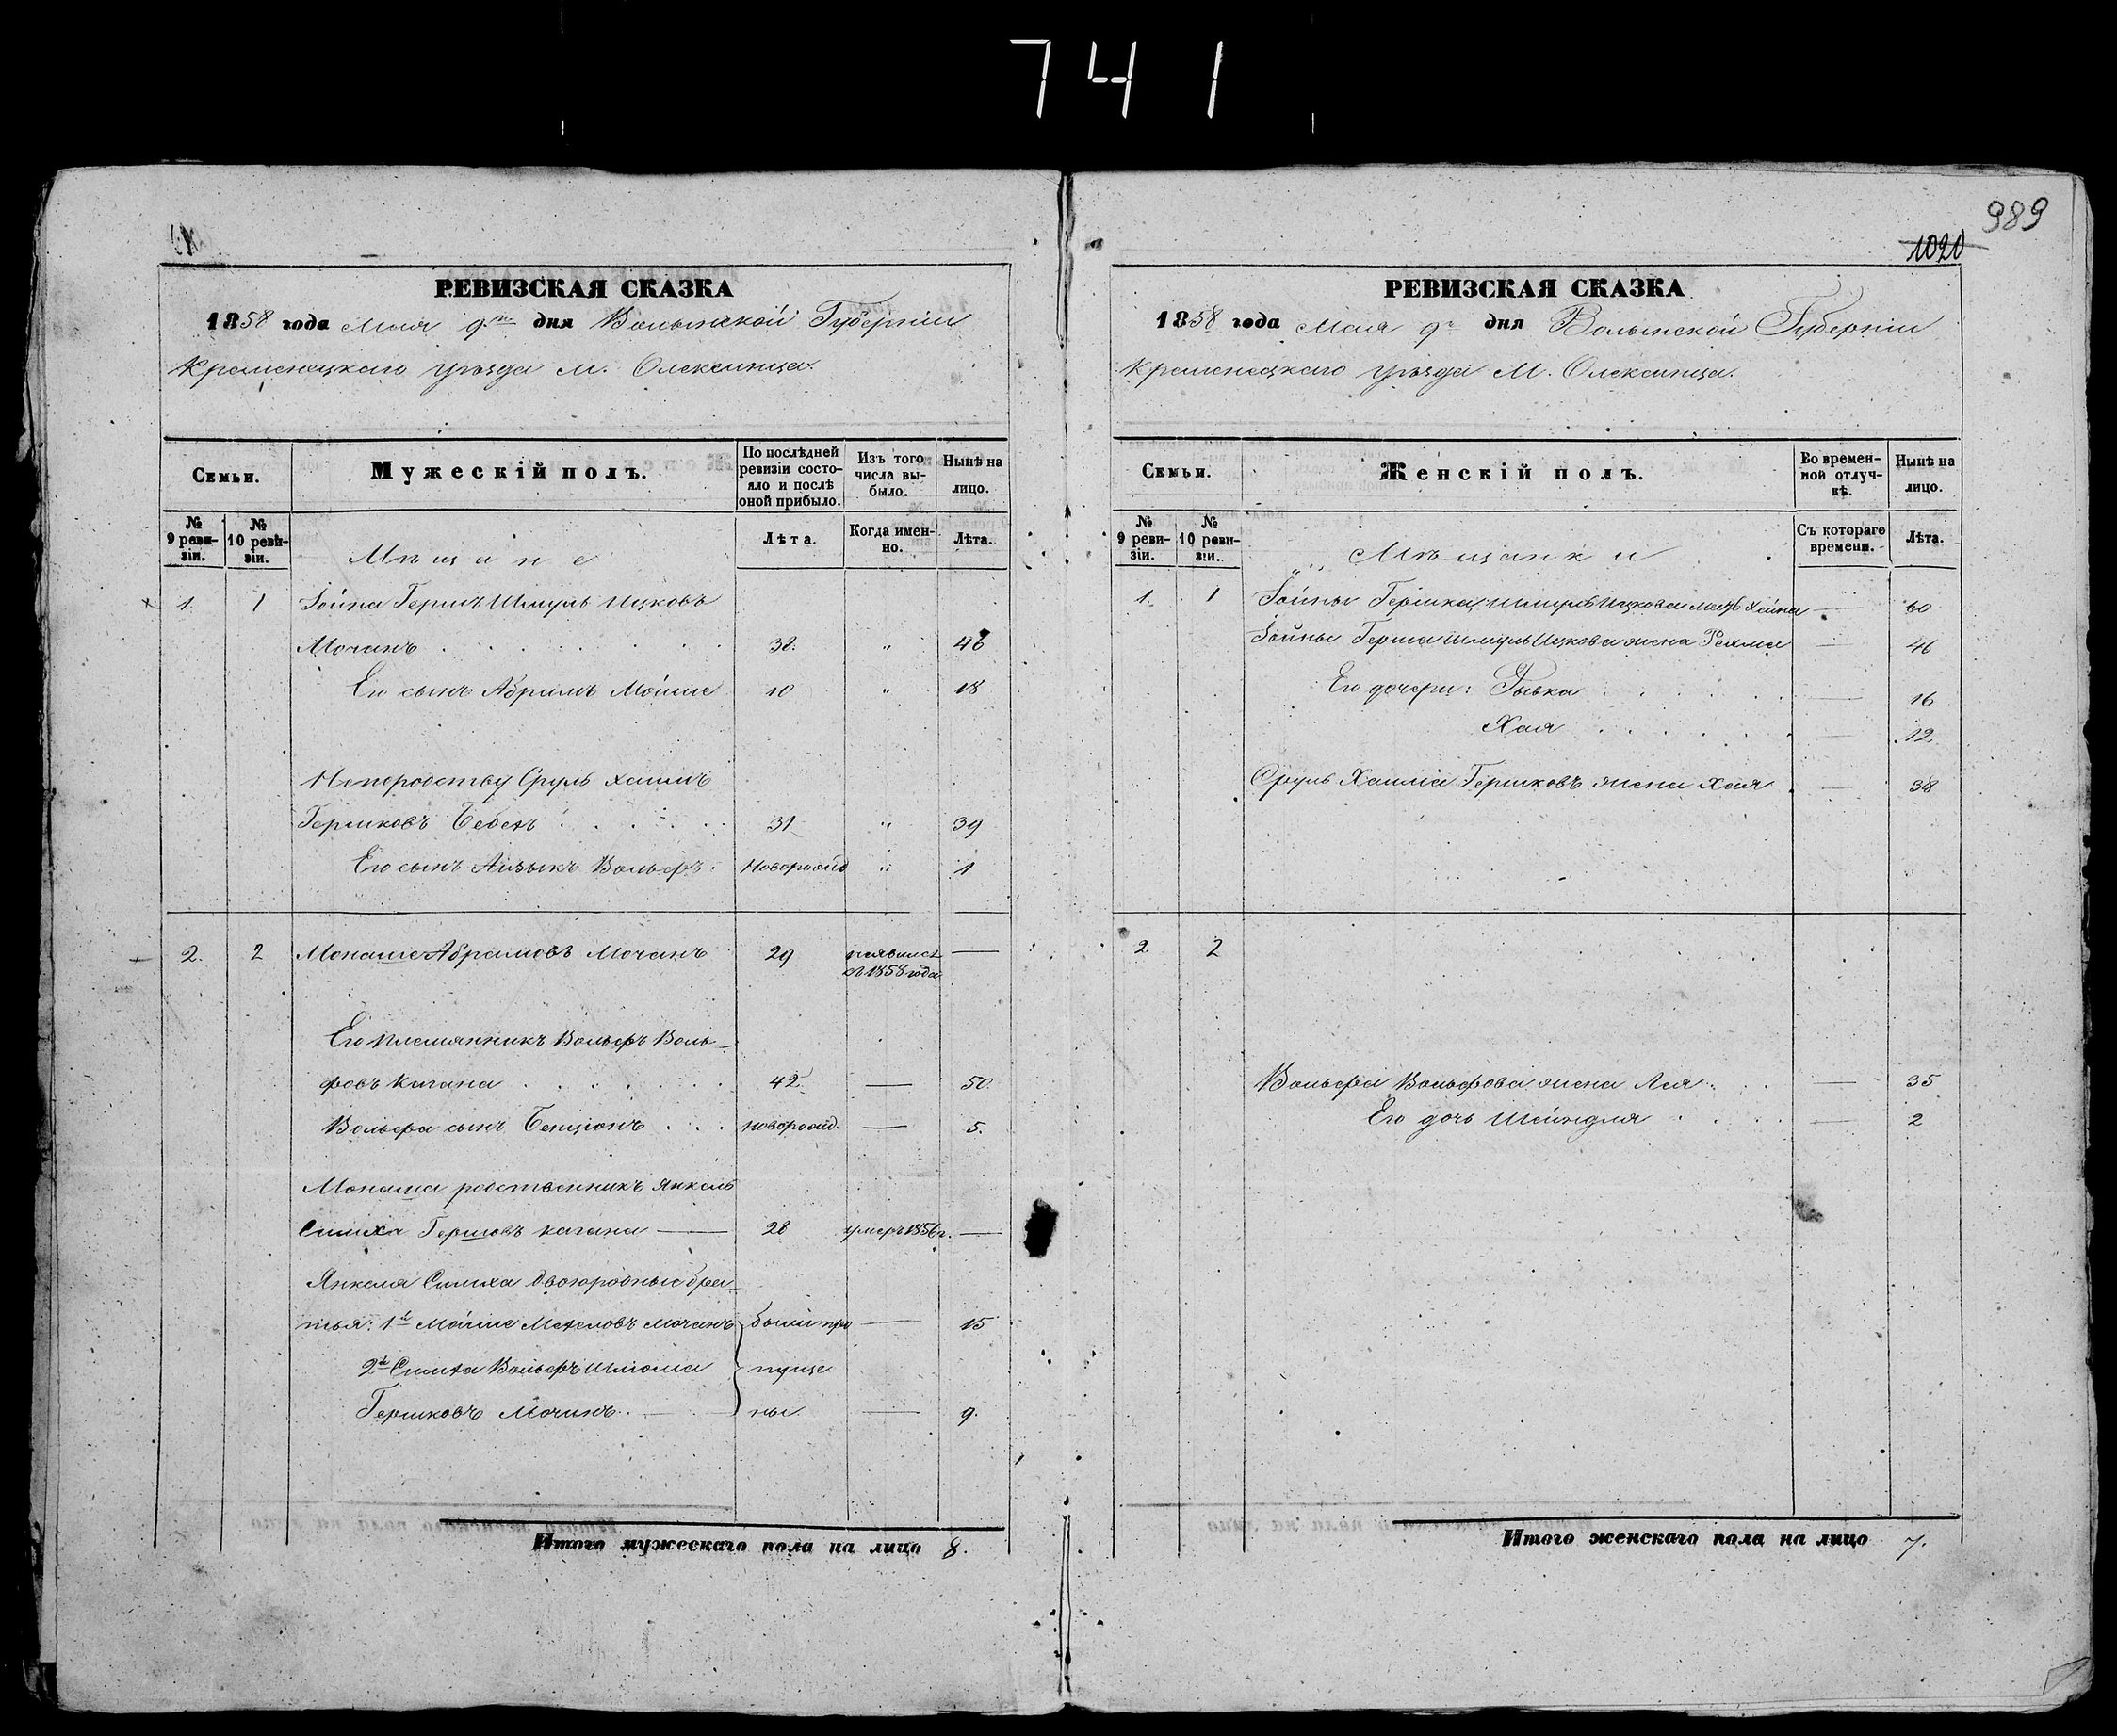 741
989
1020
РЕВИЗСКАЯ СКАЗКА
1858 года Мая 9го дня Волынской Губерніи
Кременецкаго уѣзда м. Олексинца.
Семьи.
Мужескій полъ.
По послѣдней ревизіи состояло и послѣ оной прибыло.
Изъ того числа выбыло.
Нынѣ на лицо.
№ 9 ревизіи.
№ 10 ревизіи.
Мѣщане
Лѣта.
Когда именно.
Лѣта.
1. 1 Іойна Гершъ Шмуль Ицковъ
Мочанъ 38. " 46
Его сынъ Абрамъ Мойше 10 " 18
Непородству Сруль Хаимъ
Гершковъ Бебехъ 31 " 39
Его сынъ Айзыкъ Вольфъ. Новорожд " 1
2. 2 Монаше Абрамовъ Мочанъ 29 неявился —
съ 1858 года
Его племянникъ Вольфъ Воль-
фовъ Кагана 42. — 50.
Вольфа сынъ Бенціонъ новорожд. — 5.
Монаша родственникъ Янкель
Симха Гершовъ Кагана — 28 умеръ 1856 г. —
Янкеля Симха двоюродные бра-
тья: 1й Мойше Мехеловъ Мочанъ были про — 15
2й Симха Вольфъ Шлома пуще
Гершковъ Мочанъ. — ны. — 9.
Итого мужескаго пола на лицо 8.
РЕВИЗСКАЯ СКАЗКА
1858 года Мая 9го дня Волынской Губерніи
Кременецкаго уѣзда М. Олексинца.
Семьи.
Женскій полъ.
Во временной отлучкѣ.
Нынѣ на лицо.
№ 9 ревизіи.
№ 10 ревизіи.
Мѣщанки
Съ котораго времени.
Лѣта.
1. 1 Іойны Гершка Шмуль Ицкова мать Хейна — 60
Іойны Герша Шмуль Ицкова жена Фейма — 46
Его дочери: Рывка — 16
Хая — 12.
Сруль Хаима Гершковъ жена Хая — 38
2. 2
Вольфа Вольфова жена Лея — 35
Его дочь Шейндля — 2
Итого женскаго пола на лицо 7.